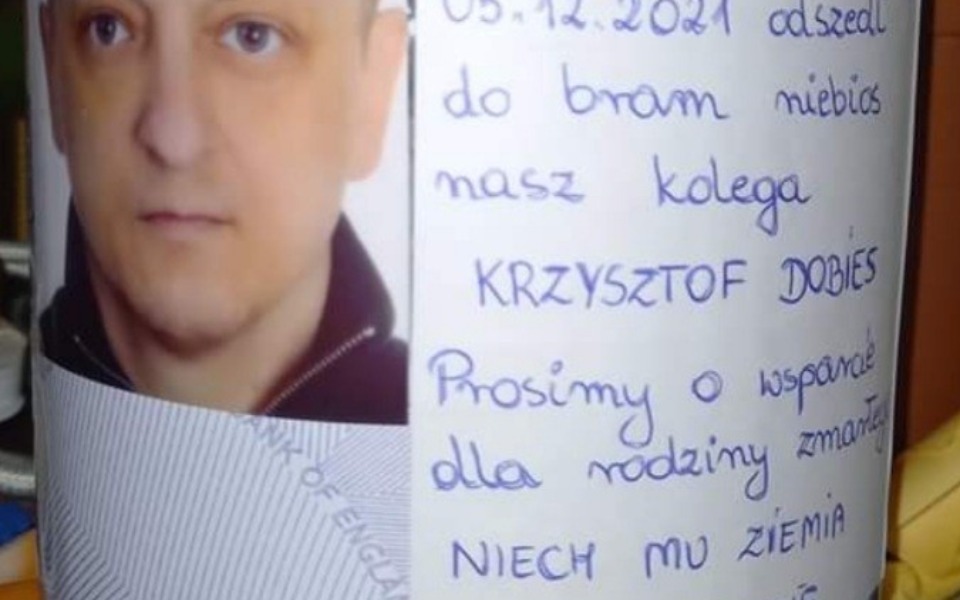 05.12.2021 odszedł
do bram niebios
nasz kolega
KRZYSZTOF DOBIEŚ
Prosimy o wsparcie
dla rodziny zmarłego
NIECH MU ZIEMIA
BANK OF ENGLA